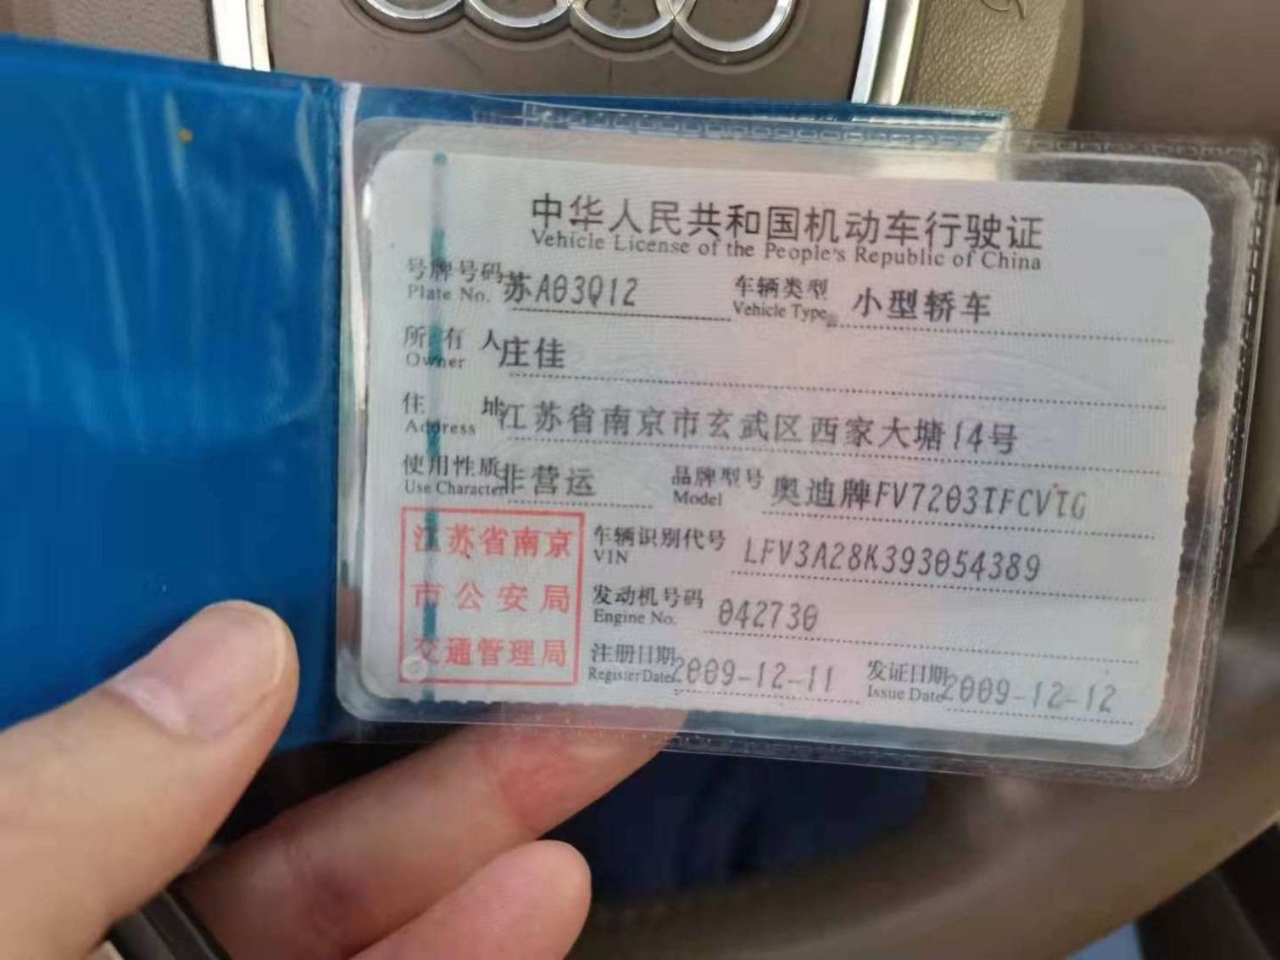 中华人民共和国机动车行驶证
Vehicle License of the People's Republic of China
号牌号码 苏A03Q12 车辆类型 小型轿车
Plate No. Vehicle Type
所有人 庄佳
Owner
住址 江苏省南京市玄武区西家大塘14号
Address
使用性质 非营运 品牌型号 奥迪牌FV7203IFCVTG
Use Character Model
江苏省南京
市公安局
交通管理局
车辆识别代号 LFV3A28K393054389
VIN
发动机号码 042730
Engine No.
注册日期 2009-12-11 发证日期 2009-12-12
Register Date Issue Date